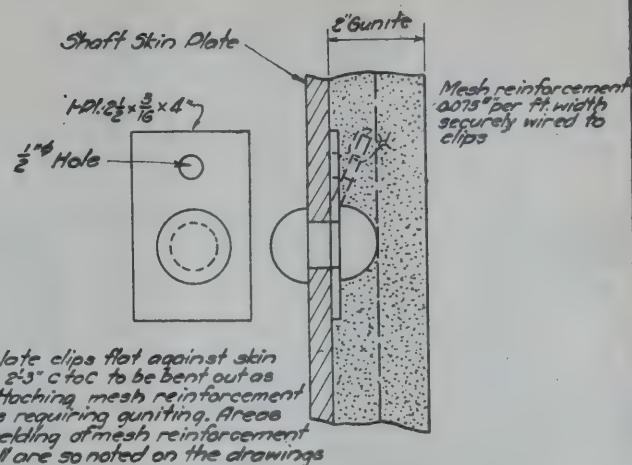 2" Gunite
Shaft Skin Plate
1-Pl. 2 1/2 x 3/16 x 4"
1/2"ϕ Hole
Mesh reinforcement
0.075▫" per ft. width
securely wired to
clips
late clips flat against skin
2'-3" c to c to be bent out as
ttaching mesh reinforcement
s requiring guniting. Areas
elding of mesh reinforcement
ll are so noted on the drawings